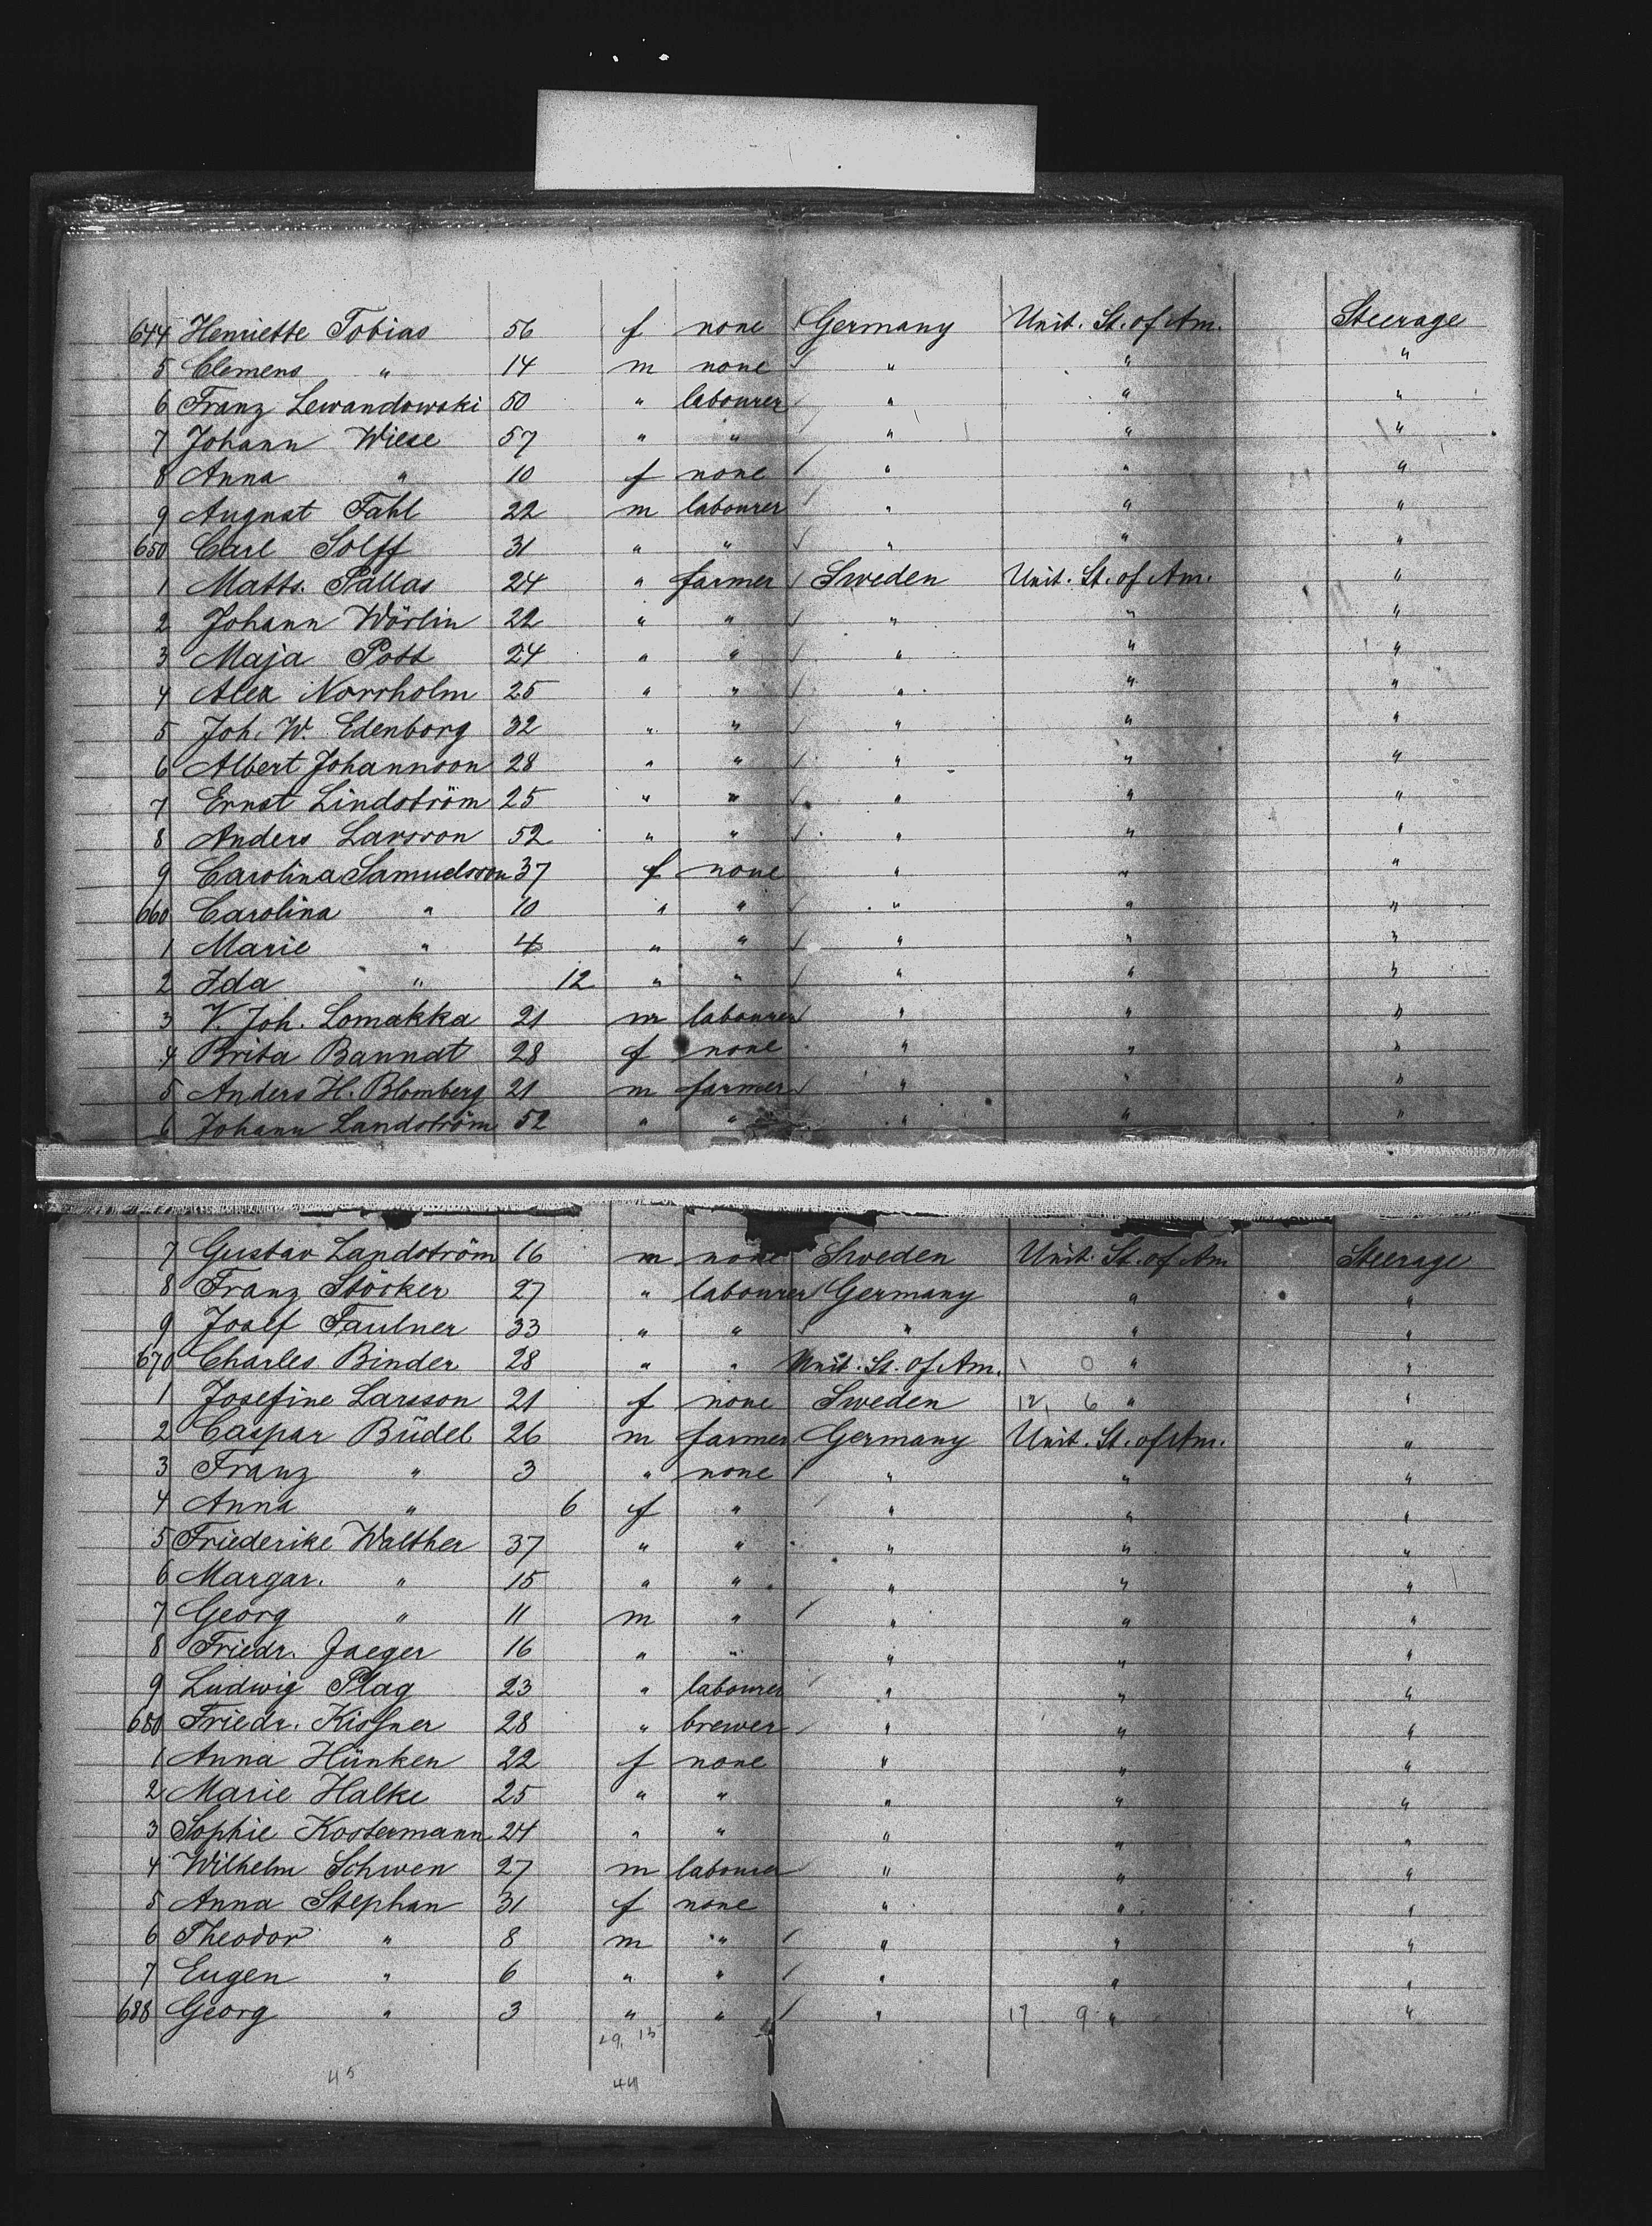 644 Henriette Tobias 56 f none Germany Unit. St. of Am. Steerage
5 Clemens " 14 m none " " "
6 Franz Lewandowski 50 " labourer " " "
7 Johann Wiese 57 " " " " "
8 Anna " 10 f none " " "
9 August Fahl 22 m labourer " " "
650 Carl Solff 31 " " " " "
1 Matts. Pallas 24 " farmer Sweden Unit. St. of Am. "
2 Johann Wörlin 22 " " " " "
3 Maja Post 24 " " " " "
4 Alex Norrholm 25 " " " " "
5 Joh. W. Edenborg 32 " " " " "
6 Albert Johannson 28 " " " " "
7 Ernst Lindström 25 " " " " "
8 Anders Larsson 52 " " " " "
9 Carolina Samuelsson 37 f none " " "
660 Carolina " 10 " " " " "
1 Marie " 4 " " " " "
2 Ida " 12 " " " " "
3 V. Joh. Lomakka 21 m labourer " " "
4 Brita Bannat 28 f none " " "
5 Anders H. Blomberg 21 m farmer " " "
6 Johann Landström 52 " " " " "
7 Gustav Landström 16 m none Sweden Unit. St. of Am Steerage
8 Franz Stöcker 27 " labourer Germany " "
9 Josef Faulner 33 " " " " "
670 Charles Binder 28 " " Unit. St. of Am. 1 0 " "
1 Josefine Larsson 21 f none Sweden 12, 6 " "
2 Caspar Büdel 26 m farmer Germany Unit. St. of Am. "
3 Franz " 3 " none " " "
4 Anna " 6 f " " " "
5 Friederike Walther 37 " " " " "
6 Margar. " 15 " " " " "
7 Georg " 11 m " " " "
8 Friedr. Jaeger 16 " " " " "
9 Ludwig Plag 23 " labourer " " "
680 Friedr. Kissner 28 " brewer " " "
1 Anna Hünken 22 f none " " "
2 Marie Halke 25 " " " " "
3 Sophie Kostermann 24 " " " " "
4 Wilhelm Schwen 27 m labourer " " "
5 Anna Stephan 31 f none " " "
6 Theodor " 8 m " " " "
7 Eugen " 6 " " " " "
688 Georg " 3 " " " 17 9 " "
29, 15
45 44